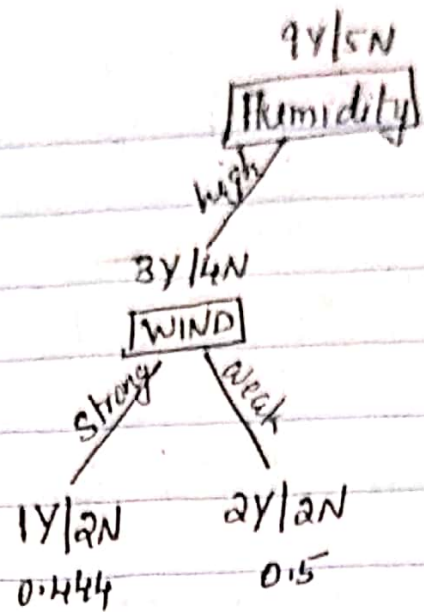 9Y/5N
Humidity
high
3Y/4N
WIND
Strong
Weak
1Y/2N
2Y/2N
0.444
0.5